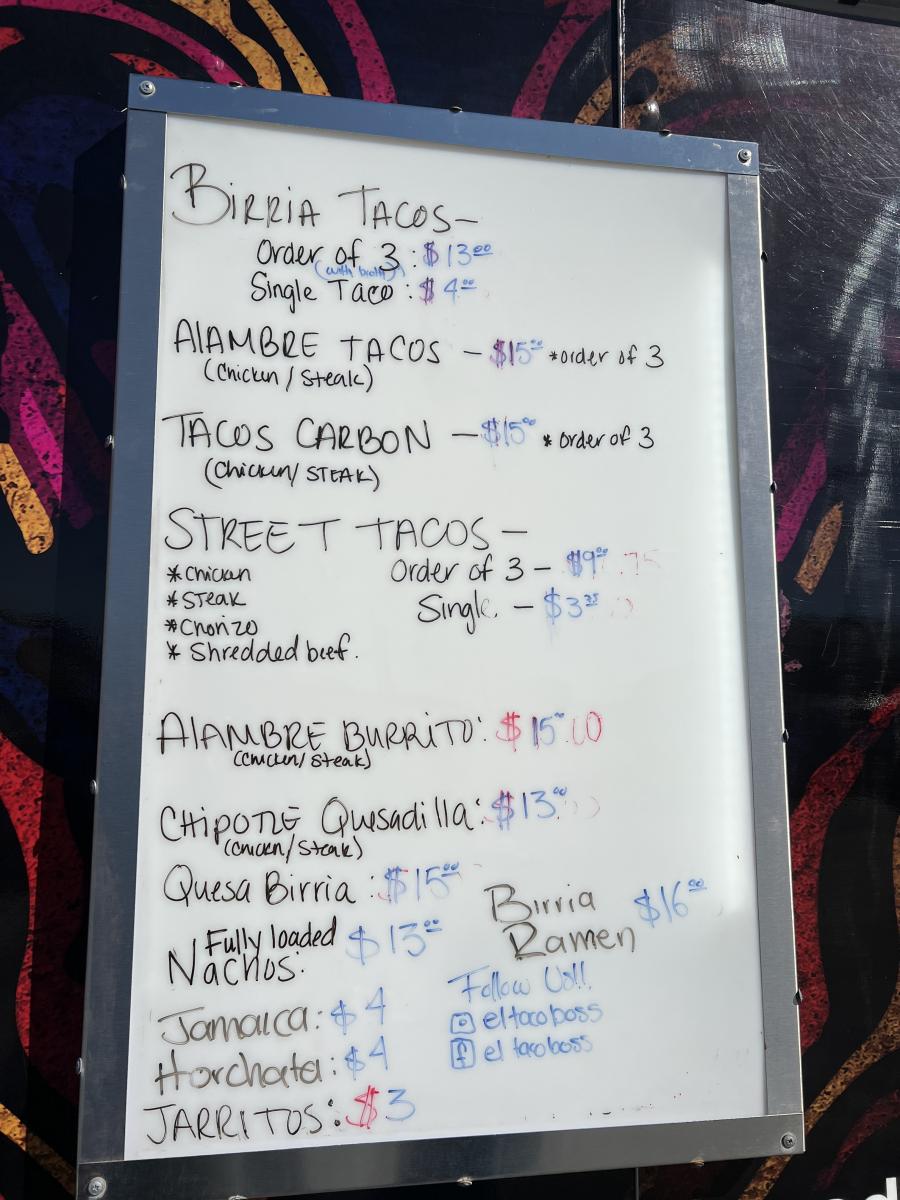 BIRRIA TACOS -
Order of 3 : $13.00
(with broth)
Single Taco : $4.00
AlAMBRE TACOS - $15.00 *order of 3
(Chicken / Steak)
TACOS CARBON - $15.00 * order of 3
(Chicken/ STEAK)
STREET TACOS -
*Chicken Order of 3 - $9.00
*STEAK Single. -
*Chorizo
* Shredded beef.
AlAMBRE BURRITO: $15.00
(Chicken/Steak)
CHIPOTLE Quesadilla: $13.00
(Chicken/Steak)
Quesa Birria : $15.00
Birria $16.00
Ramen
Fully loaded $13.00
Nachos:
Jamaica: $4
Horchata: $4
JARRITOS: $3
Follow Us!!
eltacoboss
el tacoboss